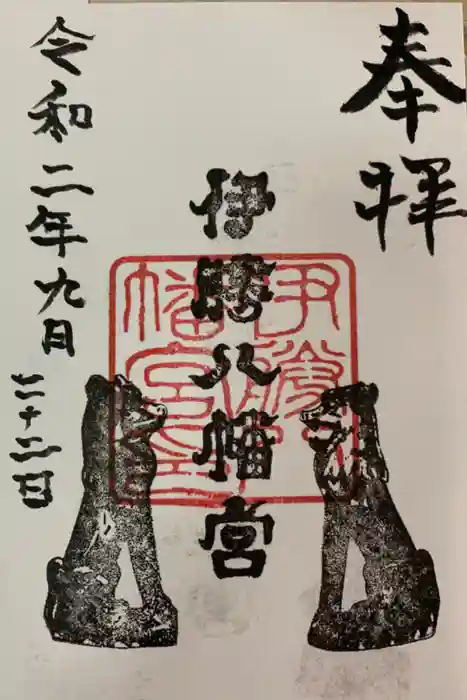 奉拝
伊勝八幡宮
伊勝八
幡宮
令和二年九月
二十二日